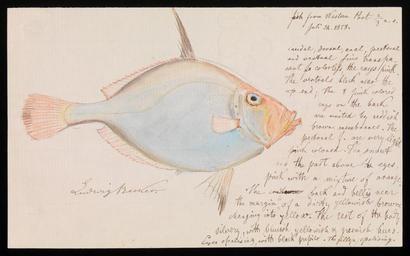 fish from Western Port 2/3 n.s.
Juli 24. 1858.
caudal, dorsal, anal, pectoral
and ventral fins transpa
rent & colorless the rays pink.
The ventrals black near the
up end; the 8 pink colored
rays on the back
are united by reddish
brown membranes. The
pectoral f. are very light
pink colored. The snout
and the part above the eyes
pink with a mixture of orange.
The back and belly near
the margin of a dirty yellowish brown
changing into yellow. The rest of the body
silvery, with bluish, yellowish & greenish hues.
Eyes opalising with black pupils. The fillgs opalising.
Ludwig Becker.